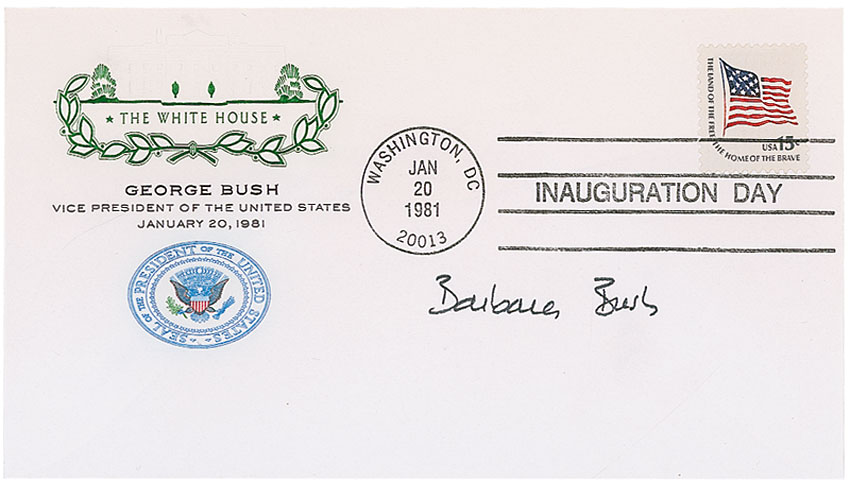 ★ THE WHITE HOUSE ★
GEORGE BUSH
VICE PRESIDENT OF THE UNITED STATES
JANUARY 20, 1981
SEAL OF THE PRESIDENT OF THE UNITED STATES
WASHINGTON, DC
JAN
20
1981
20013
INAUGURATION DAY
THE LAND OF THE FREE
THE HOME OF THE BRAVE
USA 15c
Barbara Bush